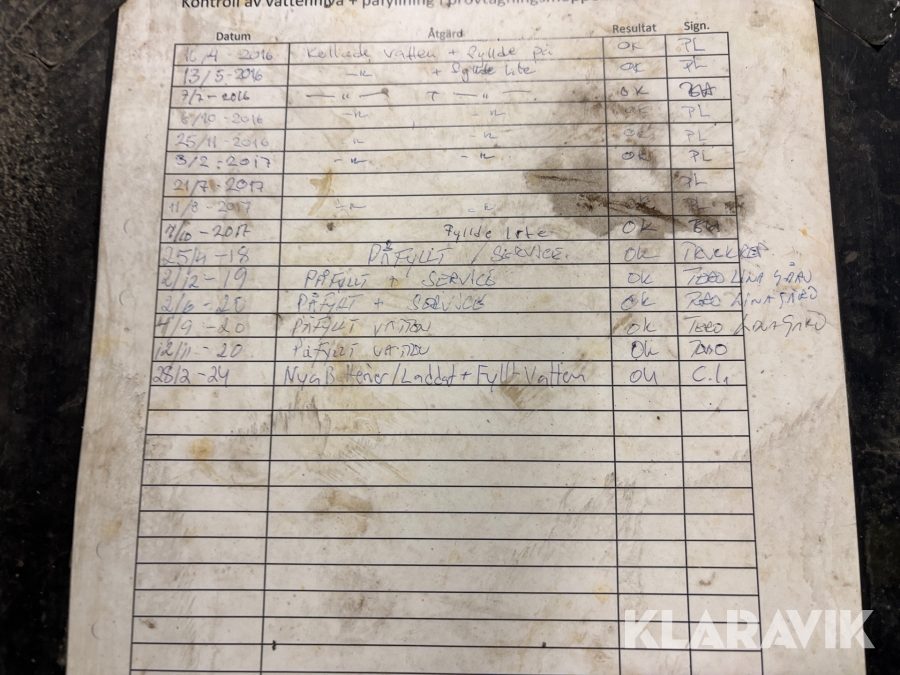 Kontroll av vattennivå + påfyllning i
Datum Åtgärd Resultat Sign.
16/4-2016 Kollade vatten + fyllde på OK PL
13/5-2016 -"- + fyllde lite OK PL
7/7-2016 — " — + — " — OK
6/10-2016 -"- -"- OK PL
25/11-2016 -"- -"- OK PL
3/2-2017 -"- -"- OK PL
21/7-2017 PL
11/8-2017 -"- -"- PL
7/10-2017 Fyllde lite OK
25/4-18 PÅFYLLT / SERVICE. OK
2/12-19 PÅFYLLT + SERVICE OK
2/6-20 PÅFYLLT + SERVICE OK
4/9-20 PÅFYLLT VATTEN OK
12/11-20 PÅFYLLT VATTEN OK
28/2-24 Nya Batterier/Laddat + Fyllt Vatten OK C.L
KLARAVIK